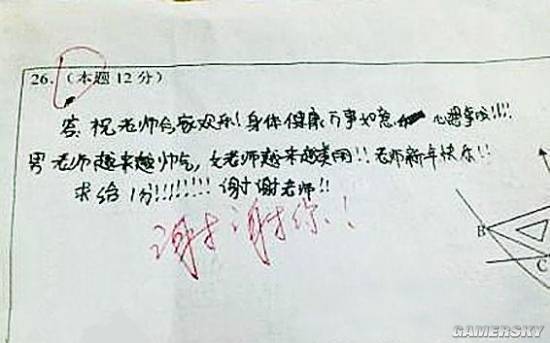 26.（本题12分）
答：祝老师合家欢乐！身体健康万事如意 心想事成!!!!
男老师越来越帅气，女老师越来越美丽!! 老师新年快乐!!
求给1分!!!!!!!! 谢谢老师!!
谢谢你！!
B
C
GAMERSKY